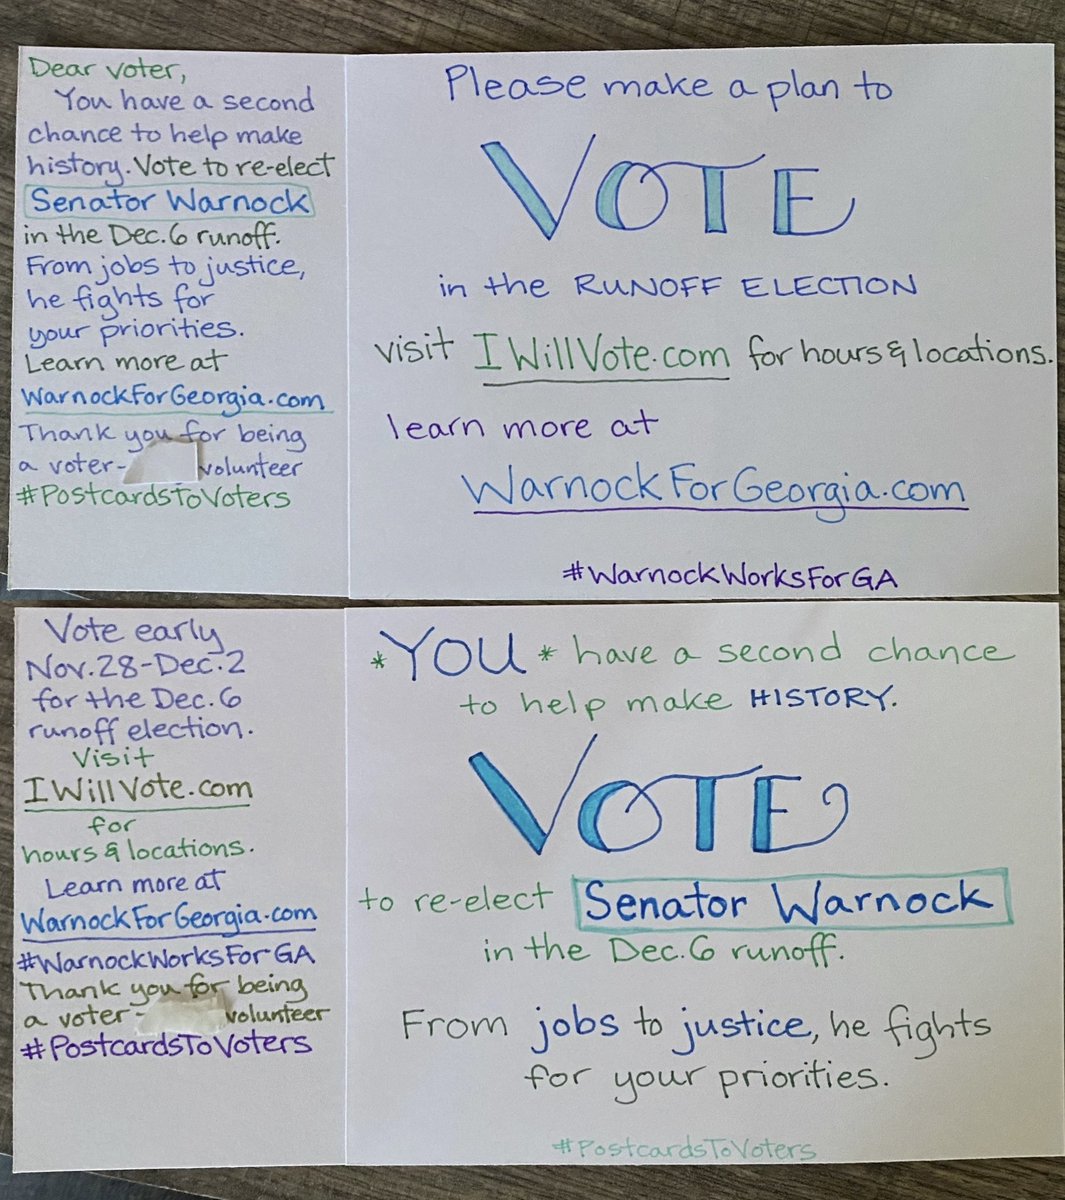 Dear voter,
You have a second
chance to help make
history. Vote to re-elect
Senator Warnock
in the Dec. 6 runoff.
From jobs to justice,
he fights for
your priorities.
Learn more at
WarnockForGeorgia.com
Thank you for being
a voter- volunteer
#PostcardsToVoters
Please make a plan to
VOTE
in the RUNOFF ELECTION
visit IWillVote.com for hours & locations.
learn more at
WarnockForGeorgia.com
#WarnockWorksForGA
Vote early
Nov. 28-Dec. 2
for the Dec. 6
runoff election.
Visit
IWillVote.com
for
hours & locations.
Learn more at
WarnockForGeorgia.com
#WarnockWorksForGA
Thank you for being
a voter- volunteer
#PostcardsToVoters
*YOU* have a second chance
to help make HISTORY.
VOTE
to re-elect Senator Warnock
in the Dec. 6 runoff.
From jobs to justice, he fights
for your priorities.
#PostcardsToVoters